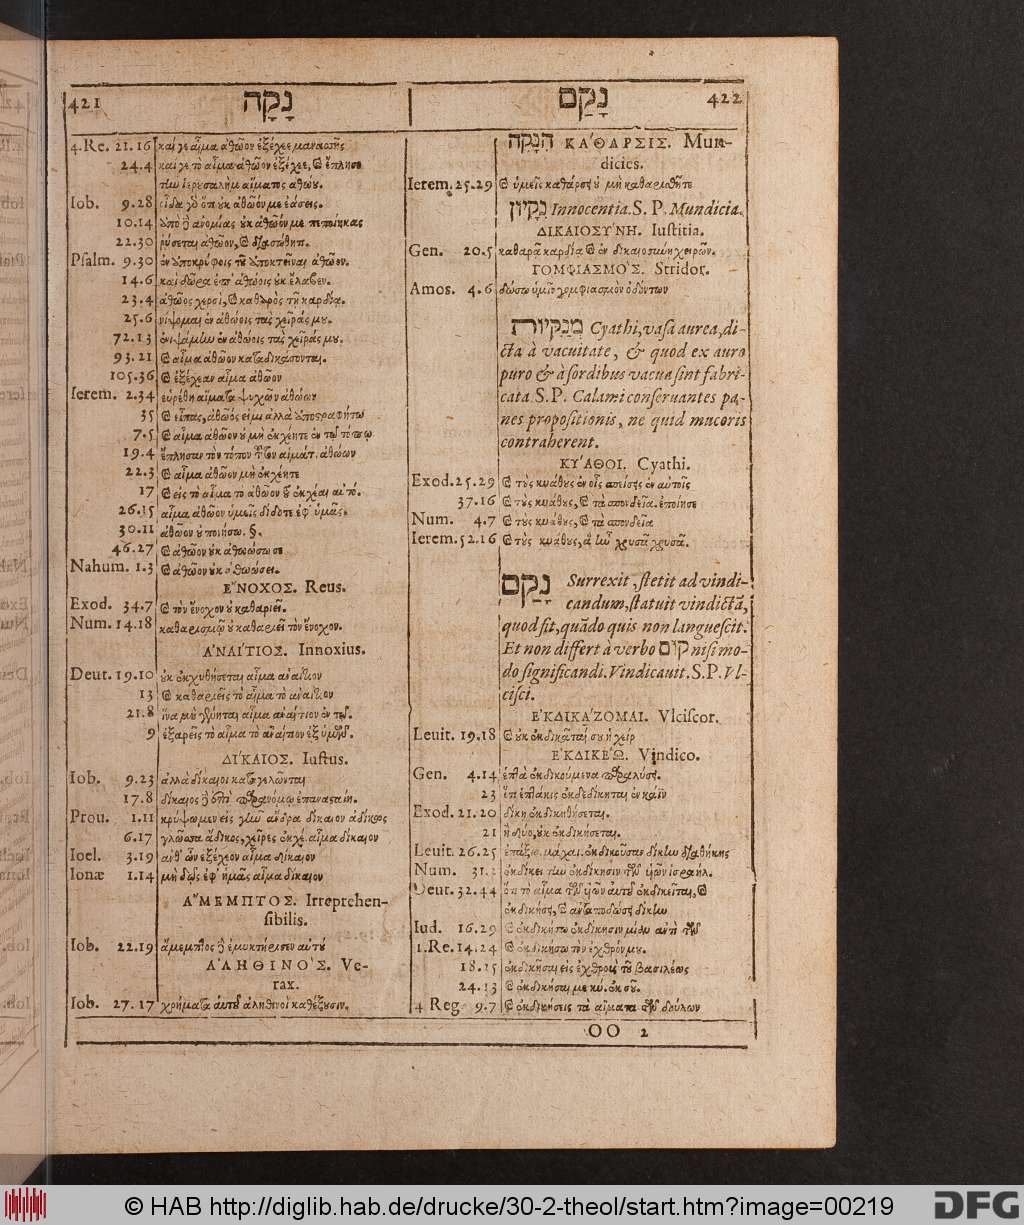 421 נָקָה
4.Re. 21.16 καί γε αἷμα ἀθῶον ἐξέχεε μανασσῆς
24.4 καί γε τὸ αἷμα ἀθῶον ἐξέχεε, καὶ ἔπλησε
τὴν ἱερουσαλὴμ αἵματος ἀθώου.
Iob. 9.28 οἶδα γὸ ὅτι οὐκ ἀθῶόν με ἐάσεις.
10.14 ἀπὸ δὲ ἀνομίας οὐκ ἀθῶόν με πεποίηκας
22.30 ῥύσεται ἀθῶον, καὶ διασώθητι.
Psalm. 9.30 ἐν ἀποκρύφοις τοῦ ἀποκτεῖναι ἀθῶον.
14.6 καὶ δῶρα ἐπ' ἀθώοις οὐκ ἔλαβεν.
23.4 ἀθῶος χερσὶ, καὶ καθαρὸς τῇ καρδίᾳ.
25.6 νίψομαι ἐν ἀθώοις τὰς χεῖράς μου.
72.13 ἐνιψάμην ἐν ἀθώοις τὰς χεῖράς μου.
93.21 καὶ αἷμα ἀθῶον καταδικάσονται.
105.36 καὶ ἐξέχεαν αἷμα ἀθῶον
Ierem. 2.34 εὑρέθη αἵματα ψυχῶν ἀθώων
35 καὶ εἶπας, ἀθῶός εἰμι ἀλλὰ ἀποστραφήτω
7.5 καὶ αἷμα ἀθῶον οὐ μὴ ἐκχέητε ἐν τῷ τόπῳ
19.4 ἔπλησαν τὸν τόπον τοῦτον αἱμάτ. ἀθώων
22.3 καὶ αἷμα ἀθῶον μὴ ἐκχέητε
17 καὶ εἰς τὸ αἷμα τὸ ἀθῶον τοῦ ἐκχέαι αὐτό.
26.15 αἷμα ἀθῶον ὑμεῖς δίδοτε ἐφ' ὑμᾶς.
30.11 ἀθῶον οὐ ποιήσω. §.
46.27 καὶ ἀθῶον οὐκ ἀθωώσω σε
Nahum. 1.3 καὶ ἀθῶον οὐκ ἀθωώσει.
ἜΝΟΧΟΣ. Reus.
Exod. 34.7 καὶ τὸν ἔνοχον οὐ καθαριεῖ.
Num. 14.18 καθαρισμῷ οὐ καθαριεῖ τὸν ἔνοχον.
ἈΝΑΊΤΙΟΣ. Innoxius.
Deut. 19.10 οὐκ ἐκχυθήσεται αἷμα ἀναίτιον
13 καὶ καθαριεῖς τὸ αἷμα τὸ ἀναίτιον
21.8 ἵνα μὴ γένηται αἷμα ἀναίτιον ἐν τῷ.
9 ἐξαρεῖς τὸ αἷμα τὸ ἀναίτιον ἐξ ὑμῶν.
ΔΊΚΑΙΟΣ. Iustus.
Iob. 9.23 ἀλλὰ δίκαιοι καταγελῶνται
17.8 δίκαιος δὲ ἐπὶ παρανόμῳ ἐπανασταίη.
Prou. 1.11 κρύψωμεν εἰς γῆν ἄνδρα δίκαιον ἀδίκως
6.17 γλῶσσα ἄδικος, χεῖρες ἐκχέ. αἷμα δικαίου
Ioel. 3.19 ἀνθ' ὧν ἐξέχεον αἷμα δίκαιον
Ionæ 1.14 μὴ δῷς ἐφ' ἡμᾶς αἷμα δίκαιον
ἌΜΕΜΠΤΟΣ. Irreprehen-
sibilis.
Iob. 22.19 ἄμεμπτος δὲ ἐμυκτήρισεν αὐτούς
ἈΛΗΘΙΝΌΣ. Ve-
rax.
Iob. 27.17 χρήματα αὐτοῦ ἀληθινοὶ καθέξουσιν.
נָקַם 422
הִנָּקֵה ΚΆΘΑΡΣΙΣ. Mun-
dicies.
Ierem. 25.29 καὶ ὑμεῖς καθάρσει οὐ μὴ καθαρισθῆτε
נִקָּיוֹן Innocentia. S. P. Mundicia.
ΔΙΚΑΙΟΣΎΝΗ. Iustitia.
Gen. 20.5 καθαρᾷ καρδίᾳ καὶ ἐν δικαιοσύνῃ χειρῶν.
ΓΟΜΦΙΑΣΜΌΣ. Stridor.
Amos. 4.6 δώσω ὑμῖν γομφιασμὸν ὀδόντων
מְנַקִּיוֹת Cyathi, vasa aurea, di-
cta à vacuitate, & quod ex auro
puro & à sordibus vacua sint fabri-
cata S.P. Calami conseruantes pa-
nes propositionis, ne quid mucoris
contraherent.
ΚΎΑΘΟΙ. Cyathi.
Exod. 25.29 καὶ τοὺς κυάθους ἐν οἷς σπείσεις ἐν αὐτοῖς
37.16 καὶ τοὺς κυάθους, καὶ τὰ σπονδεῖα. ἐποίησε
Num. 4.7 καὶ τοὺς κυάθους, καὶ τὰ σπονδεῖα
Ierem. 52.16 καὶ τοὺς κυάθους, ἃ ἦν χρυσᾶ χρυσᾶ.
נָקַם Surrexit, stetit ad vindi-
candum, statuit vindictã,
quod sit, quãdo quis non languescit.
Et non differt à verbo קום nisi mo-
do significandi. Vindicauit. S.P. Vl-
cisci.
ἘΚΔΙΚΆΖΟΜΑΙ. Vlciscor.
Leuit. 19.18 καὶ οὐκ ἐκδικᾶταί σου ἡ χείρ
ἘΚΔΙΚΈΩ. Vindico.
Gen. 4.14 ἑπτὰ ἐκδικούμενα παραλύσει.
23 ὅτι ἑπτάκις ἐκδεδίκηται ἐκ κάϊν
Exod. 21.20 δίκῃ ἐκδικηθήσεται.
21 ἢ δύο, οὐκ ἐκδικήσεται.
Leuit. 26.25 ἐπάξω. μάχαι. ἐκδικοῦσαν δίκην διαθήκης
Num. 31.2 ἐκδίκει τὴν ἐκδίκησιν τῶν υἱῶν ἰσραήλ.
Deut. 32.44 ὅτι τὸ αἷμα τῶν υἱῶν αὐτοῦ ἐκδικεῖται, καὶ
ἐκδικήσει, καὶ ἀνταποδώσει δίκην
Iud. 16.29 καὶ ἐκδικήσω ἐκδίκησιν μίαν ἀντὶ τῶν
1.Re. 14.24 καὶ ἐκδικήσω τὸν ἐχθρόν μου.
18.25 ἐκδικῆσαι εἰς ἐχθροὺς τοῦ βασιλέως
24.13 καὶ ἐκδικήσαι με κύ. ἐκ σοῦ.
4 Reg 9.7 καὶ ἐκδικήσεις τὰ αἵματα τῶν δούλων
OO 2
© HAB http://diglib.hab.de/drucke/30-2-theol/start.htm?image=00219
DFG